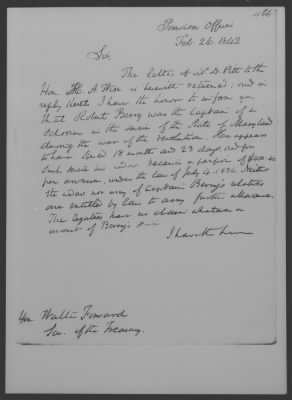 466
Pension Office
Feb 26. 1842
Sir
The letter of D. Pitt to the
Hon. H. A. Wise is herewith returned; and in
reply thereto I have the honor to inform you
that Robert Berry was the Captain of a
schooner in the service of the State of Maryland
during the war of the revolution. He appears
to have served 18 months and 23 days, and for
such service his widow receives a pension of $
per annum, under the law of July 4. 1836. Neither
the widow nor any of Captain Berry's relatives
are entitled by law to any further allowance.
The legatees have no claim whatever on
account of Berry's
I have the hon
Hon. Walter Forward
Sec. of the Treasury.